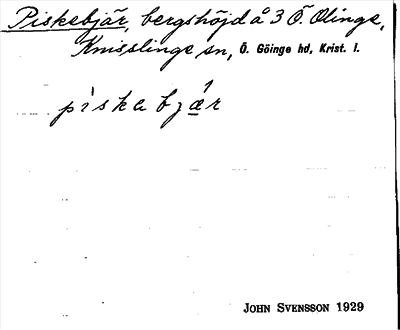 Piskebjär, bergshöjd å 3 Ö. Olinge,
Knisslinge sn, Ö. Göinge hd, Krist. l.
pìskabjǽr
JOHN SVENSSON 1929